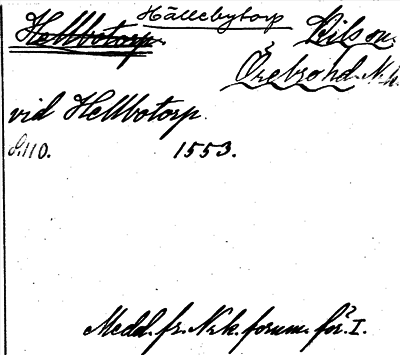 Hällebytorp
Hellbotorp. Bilson.
Örebro hd. N.
vid Hellbotorp.
S. 110. 1553.
Medd. fr. N.k. fornm. för. I.